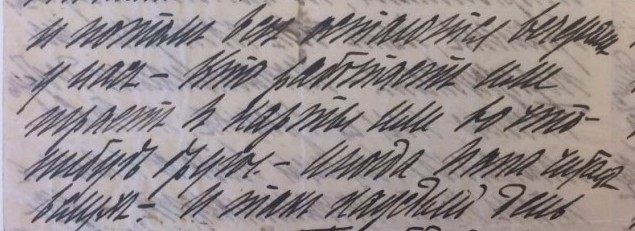 и потомъ все остаются вечеромъ
у насъ – кто работаетъ или
играетъ в карты или во что-
нибудь другое. – Иногда папа читаетъ
вслухъ. – И такъ каждый день